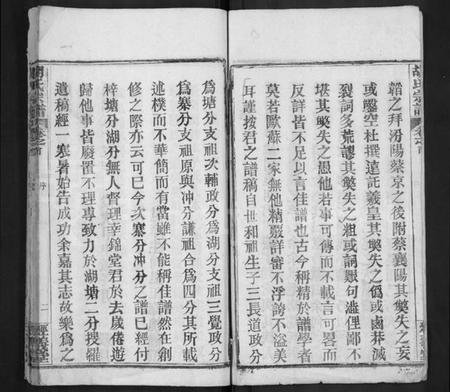 韜之拜汾陽蔡京之後附蔡襄陽其獘失之妄
或鑿空杜撰遠託羲皇其獘失之僞或鹵莽滅
裂詞多荒謬其獘失之粗或詞艱句澁俚鄙不
堪其獘失之愚他若事可傳而不載言可畧而
反詳皆不足以言佳譜也古今稱精於譜學者
莫若歐蘇二家無他精嚴詳審不浮誇不溢美
耳謹按君之譜稿自世和祖生子三長道政分
爲塘分支祖次輔政分爲湖分支祖三覺政分
爲寨分支祖原與冲分謙祖合爲四分其所載
述樸而不華簡而有當雖不能稱佳譜然在創
修之際亦云可已今次寨分冲分之譜已經付
梓塘分湖分無人督理幸錦堂君於去歲倦遊
歸他事皆廢置不理專致力於湖塘二分搜羅
遺稿經一寒暑始告成功余嘉其志故樂爲之
胡氏宗譜
卷之首
序
經義堂